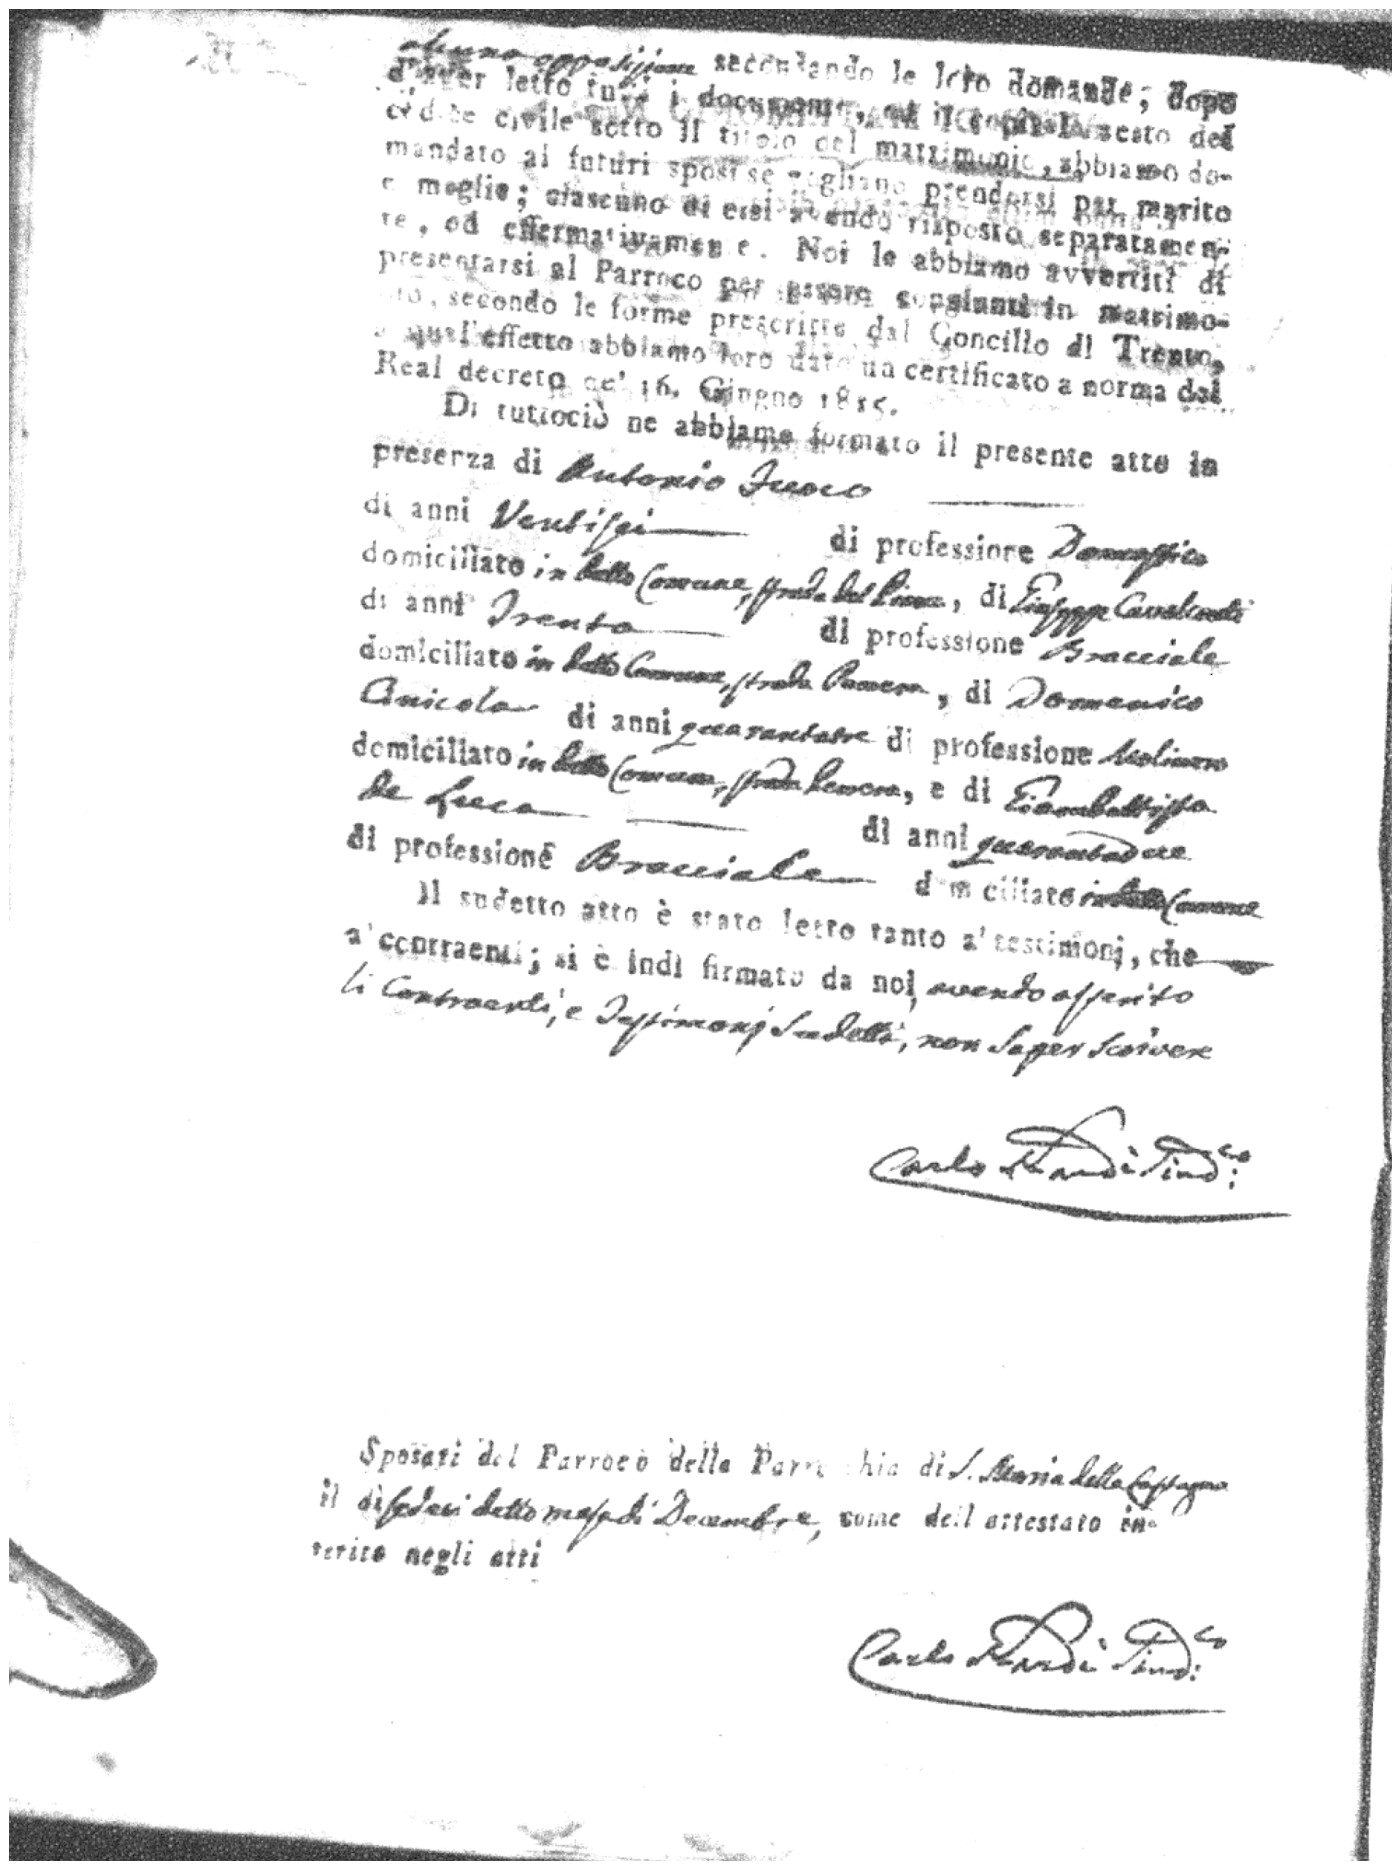 alcuna opposizione secondando le loro domande; dopo
d'aver letto tutti i documenti, ed il capitolo sesto del
codice civile sotto il titolo del matrimonio, abbiamo do-
mandato ai futuri sposi se vogliano prendersi per marito
e moglie; ciascuno di essi avendo risposto separatamen-
te, ed affermativamente. Noi le abbiamo avvertiti di
presentarsi al Parroco per essere congiunti in matrimo-
nio, secondo le forme prescritte dal Concilio di Trento,
a qual'effetto abbiamo loro dato un certificato a norma del
Real decreto de' 16. Giugno 1815.
Di tuttociò ne abbiamo formato il presente atto in
presenza di Antonio Fuoco
di anni Ventisei di professione Domestico
domiciliato in detto Comune, strada del Piano, di Giuseppe
di anni Trenta di professione Bracciale
domiciliato in detto Comune, strada, di Domenico
di anni quarantatre di professione Molinaro
domiciliato in detto Comune, strada, e di Giambattista
de Luca di anni quarantadue
di professione Bracciale domiciliato in detto Comune
Il sudetto atto è stato letto tanto a' testimonj, che
a' contraenti; si è indi firmato da noi, avendo asserito
li Contraenti, e Testimonj Sudetti, non saper scrivere
Carlo Sind.co
Sposati dal Parroco della Parrocchia di S. Maria della
il dì sedeci detto mese di Decembre, come dell attestato in-
serito negli atti
Carlo Sind.co